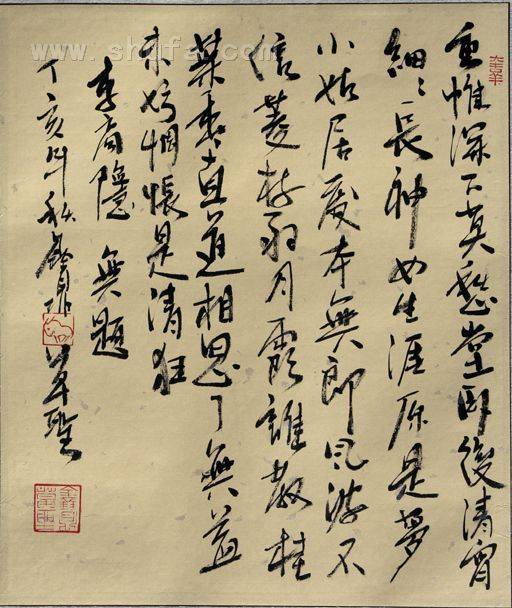 重帷深下莫愁堂卧後清宵
細〻長神女生涯原是夢
小姑居處本無郎風波不
信菱枝弱月露誰教桂
葉香直道相思了無益
未妨惆悵是清狂
李商隱 無題
丁亥年秋